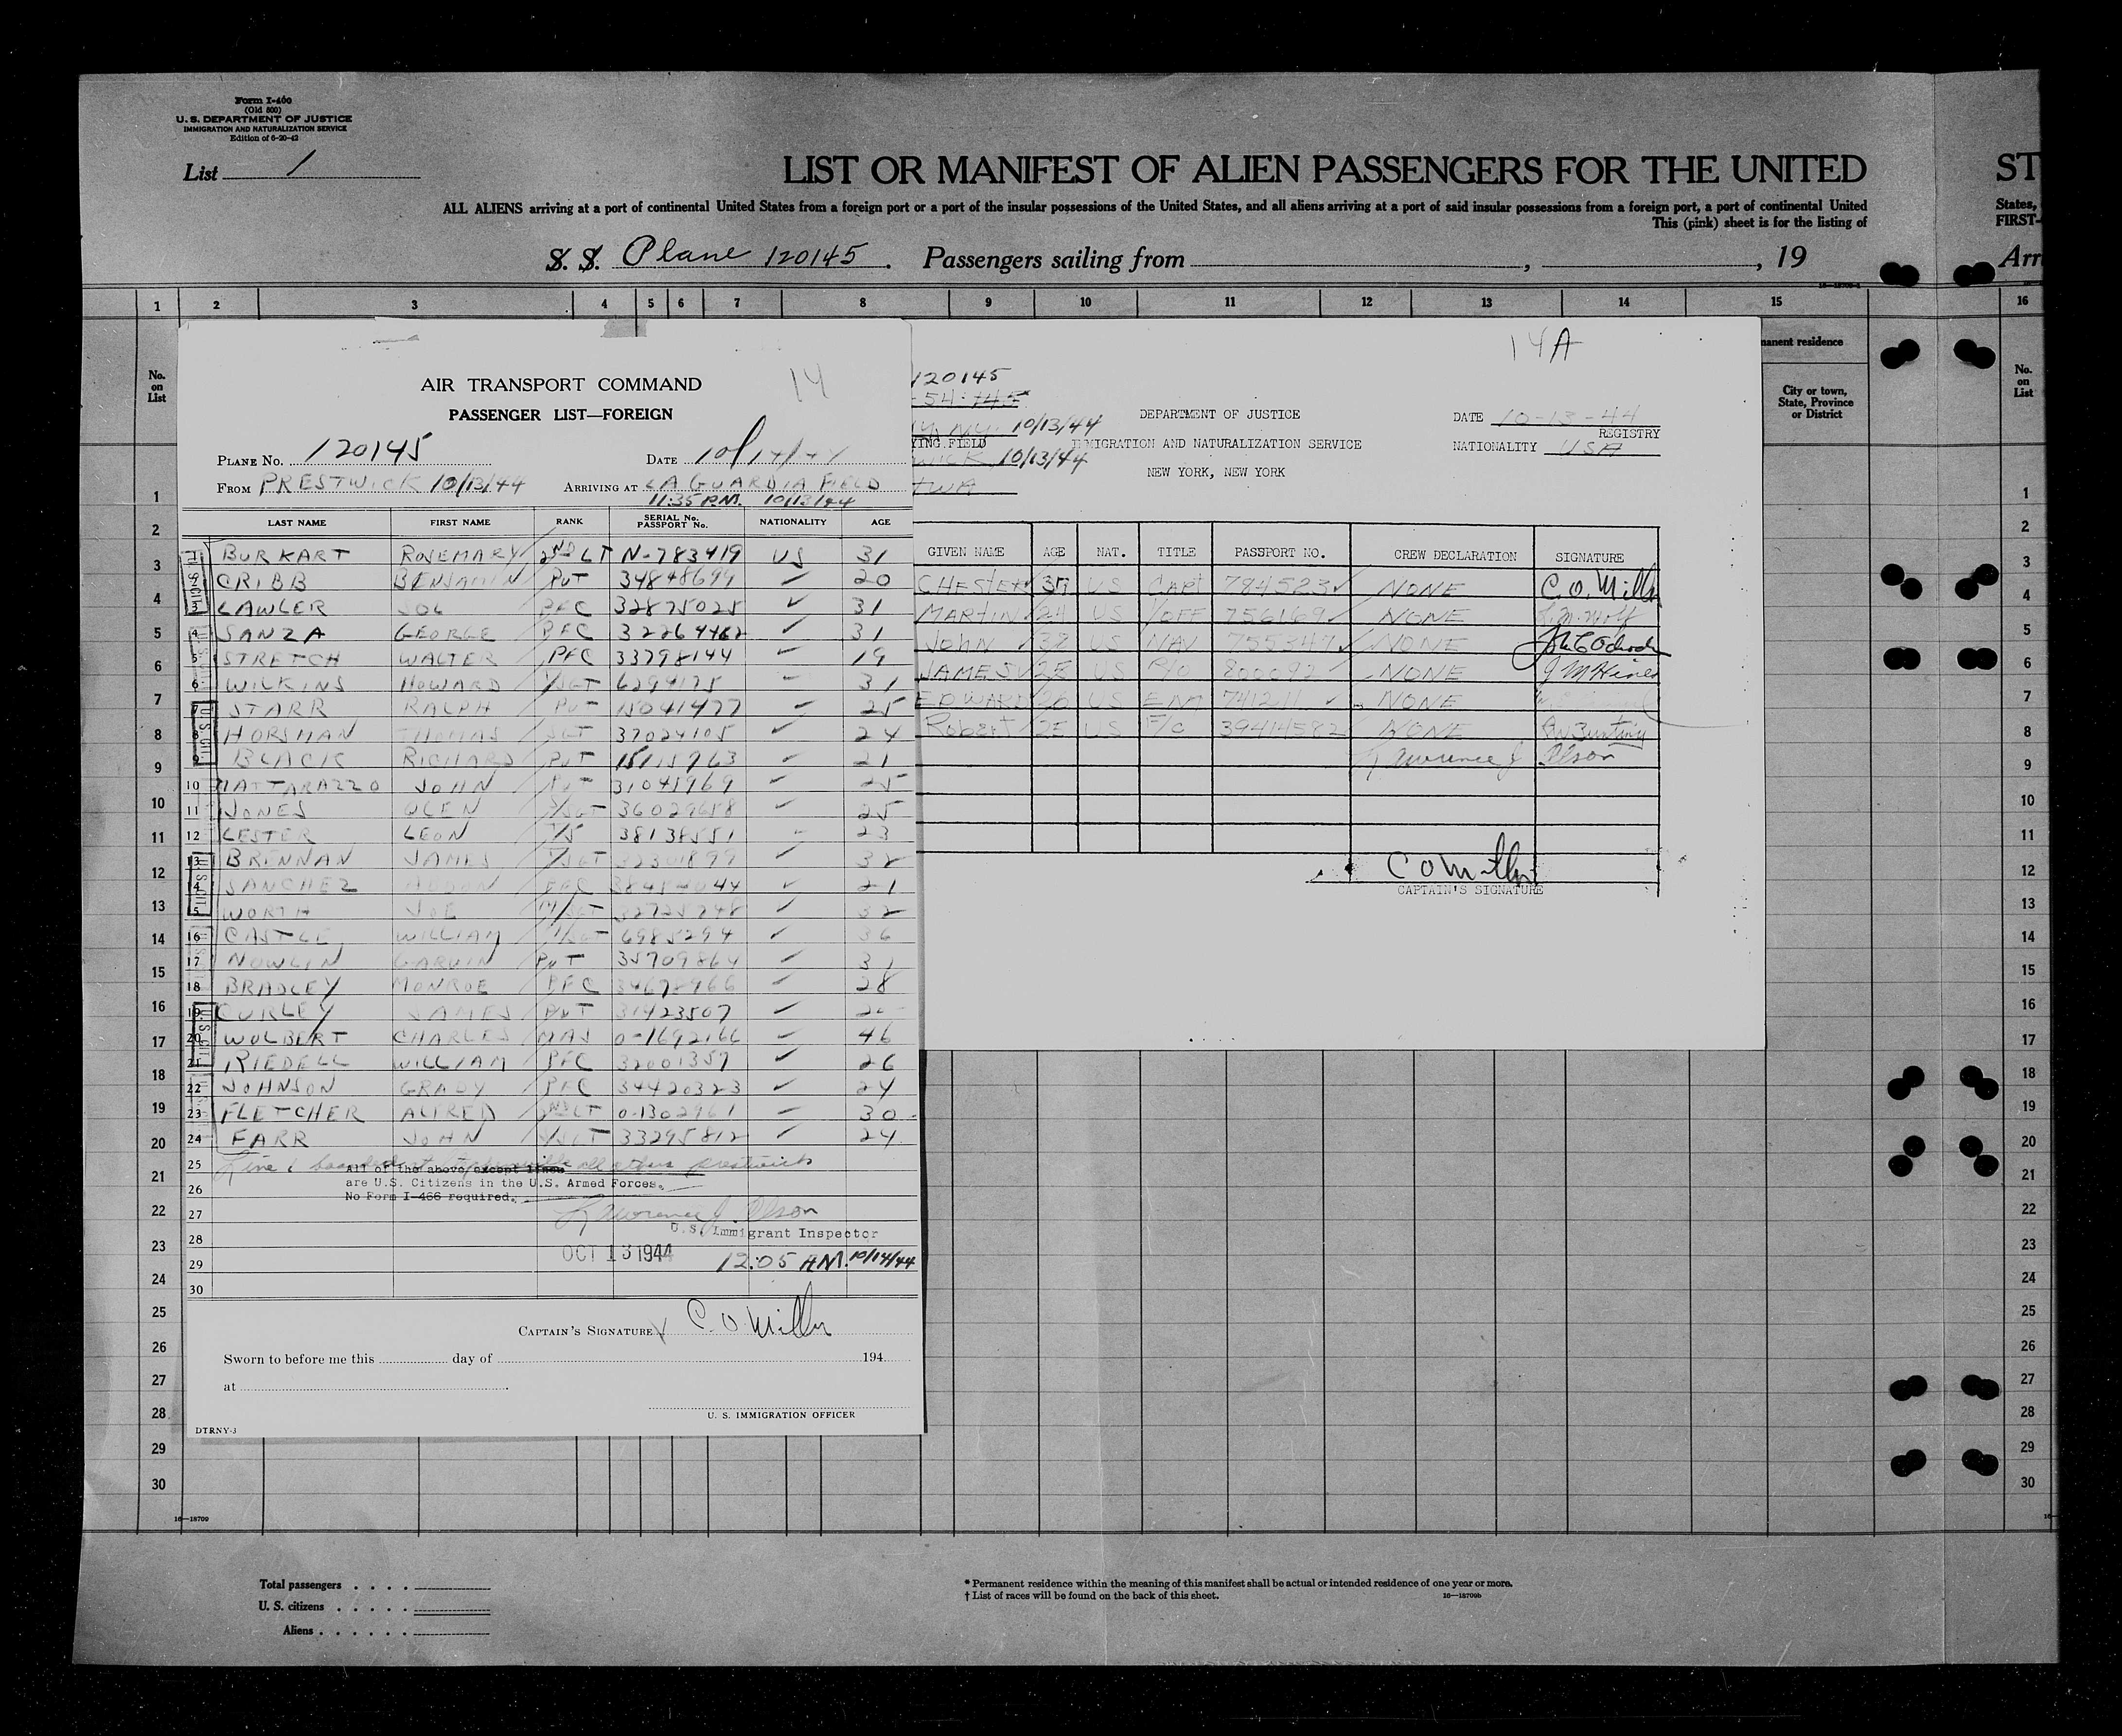 Form I-460
(Old 500)
U. S. DEPARTMENT OF JUSTICE
IMMIGRATION AND NATURALIZATION SERVICE
Edition of 6-20-42
List 1
LIST OR MANIFEST OF ALIEN PASSENGERS FOR THE UNITED
ST
ALL ALIENS arriving at a port of continental United States from a foreign port or a port of the insular possessions of the United States, and all aliens arriving at a port of said insular possessions from a foreign port, a port of continental United
States,
This (pink) sheet is for the listing of
FIRST-
S. S. Plane 120145 . Passengers sailing from , , 19
Arr
1 2 3 4 5 6 7 8 9 10 11 12 13 14 15 16
No. on List
manent residence
City or town, State, Province or District
No. on List
14
AIR TRANSPORT COMMAND
PASSENGER LIST—FOREIGN
PLANE No. 120145 DATE 10/14/44
FROM PRESTWICK 10/13/44 ARRIVING AT LA GUARDIA FIELD
11:35 P.M. 10/13/44
LAST NAME FIRST NAME RANK SERIAL No. PASSPORT No. NATIONALITY AGE
BURKART ROSEMARY 2ND LT N-783419 US 31
CRIBB BENJAMIN PVT 34848694 ✓ 20
3 LAWLER JOE PFC 32875025 ✓ 31
4 SANZA GEORGE PFC 32264462 ✓ 31
5 STRETCH WALTER PFC 33798144 ✓ 19
6 WILKINS HOWARD T/SGT 6294175 31
7 STARR RALPH PVT 15041477 ✓ 25
8 HORSMAN THOMAS SGT 37024105 ✓ 24
9 BLACK RICHARD PVT 15115963 ✓ 21
10 MATTARAZZO JOHN PVT 31045969 25
11 JONES GLEN T/SGT 36029658 ✓ 25
12 LESTER LEON T/5 38138551 23
13 BRENNAN JAMES T/SGT 32301899 ✓ 32
14 SANCHEZ PFC ✓ 21
15 WORTH JOE M/SGT 32725748 ✓ 32
16 CASTLE WILLIAM T/SGT 6985294 ✓ 36
17 NOWLIN GARVIN PVT 35709864 ✓ 31
18 BRADLEY MONROE PFC 34678966 ✓ 28
19 CURLEY JAMES PVT 31423507 ✓ 20
20 WOLBERT CHARLES MAJ 0-1692166 ✓ 46
21 RIEDELL WILLIAM PFC 32001357 ✓ 26
22 JOHNSON GRADY PFC 34420323 ✓ 24
23 FLETCHER ALFRED 2ND LT 0-1302961 30
24 FARR JOHN S/SGT 33295812 ✓ 24
25 Line 1 all others Prestwick
All of the above, except lines
26 are U.S. Citizens in the U.S. Armed Forces.
No Form I-466 required.
27 Lawrence J. Olson
28 U.S. Immigrant Inspector
29 OCT 13 1944 12:05 AM. 10/14/44
30
CAPTAIN'S SIGNATURE C. O. Miller
Sworn to before me this day of 194
at
U. S. IMMIGRATION OFFICER
DTRNY-3
14A
120145
54-745
N.Y. 10/13/44
YING FIELD
WICK 10/13/44
TWA
DEPARTMENT OF JUSTICE
IMMIGRATION AND NATURALIZATION SERVICE
NEW YORK, NEW YORK
DATE 10-13-44
REGISTRY
NATIONALITY USA
GIVEN NAME AGE NAT. TITLE PASSPORT NO. CREW DECLARATION SIGNATURE
CHESTER US CAPT 784523 ✓ NONE C. O. Miller
MARTIN 24 US 1/OFF 756169 ✓ NONE L. M. Wolf
JOHN 38 US NAV 755347 ✓ NONE
JAMES 25 US R/O 800092 NONE J M Hines
EDWARD 26 US ENG 741211 ✓ NONE
Robert 25 US F/C 39414582 NONE RW Bunting
Lawrence J Olson
C O Miller
CAPTAIN'S SIGNATURE
1 2 3 4 5 6 7 8 9 10 11 12 13 14 15 16 17 18 19 20 21 22 23 24 25 26 27 28 29 30
1 2 3 4 5 6 7 8 9 10 11 12 13 14 15 16 17 18 19 20 21 22 23 24 25 26 27 28 29 30
16—18709
Total passengers . . . .
U. S. citizens . . . . .
Aliens . . . . . .
* Permanent residence within the meaning of this manifest shall be actual or intended residence of one year or more.
† List of races will be found on the back of this sheet.
16—18709b